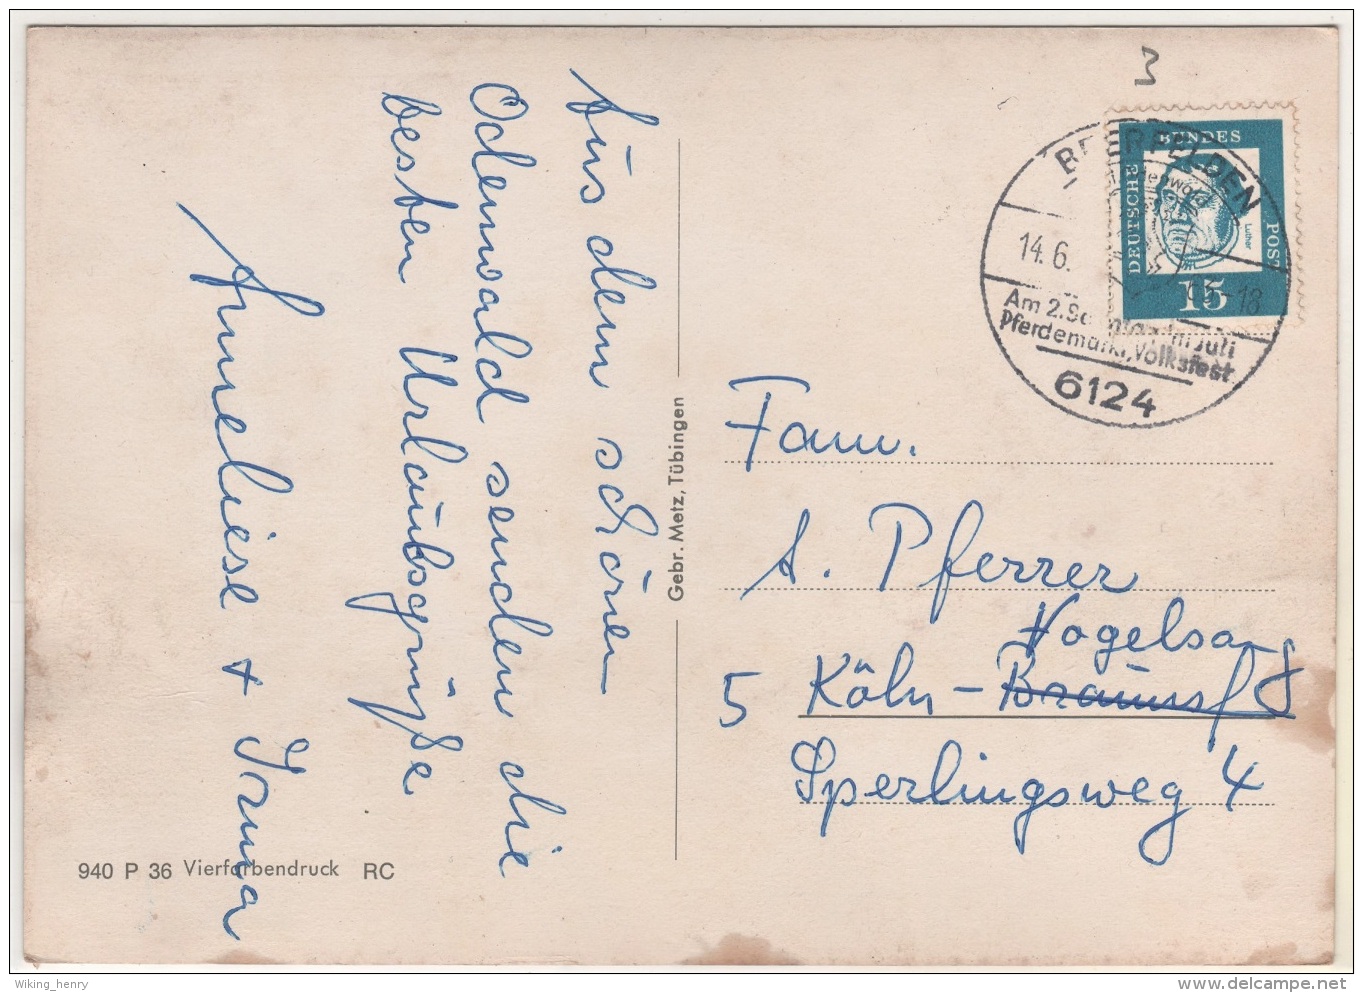 Aus dem schönen
Odenwald senden die
besten Urlaubsgrüße
Anneliese + Irma
940 P 36 Vierfarbendruck RC
Gebr. Metz, Tübingen
3
BEERFELDEN
14.6.
-18
Am 2. Sonntag im Juli
Pferdemarkt, Volksfest
6124
DEUTSCHE
BUNDES
POST
Luther
15
Fam.
A. Pferrer
Vogelsang
5 Köln - Braunsf
Sperlingsweg 4
Wiking_henry
delcampe.net